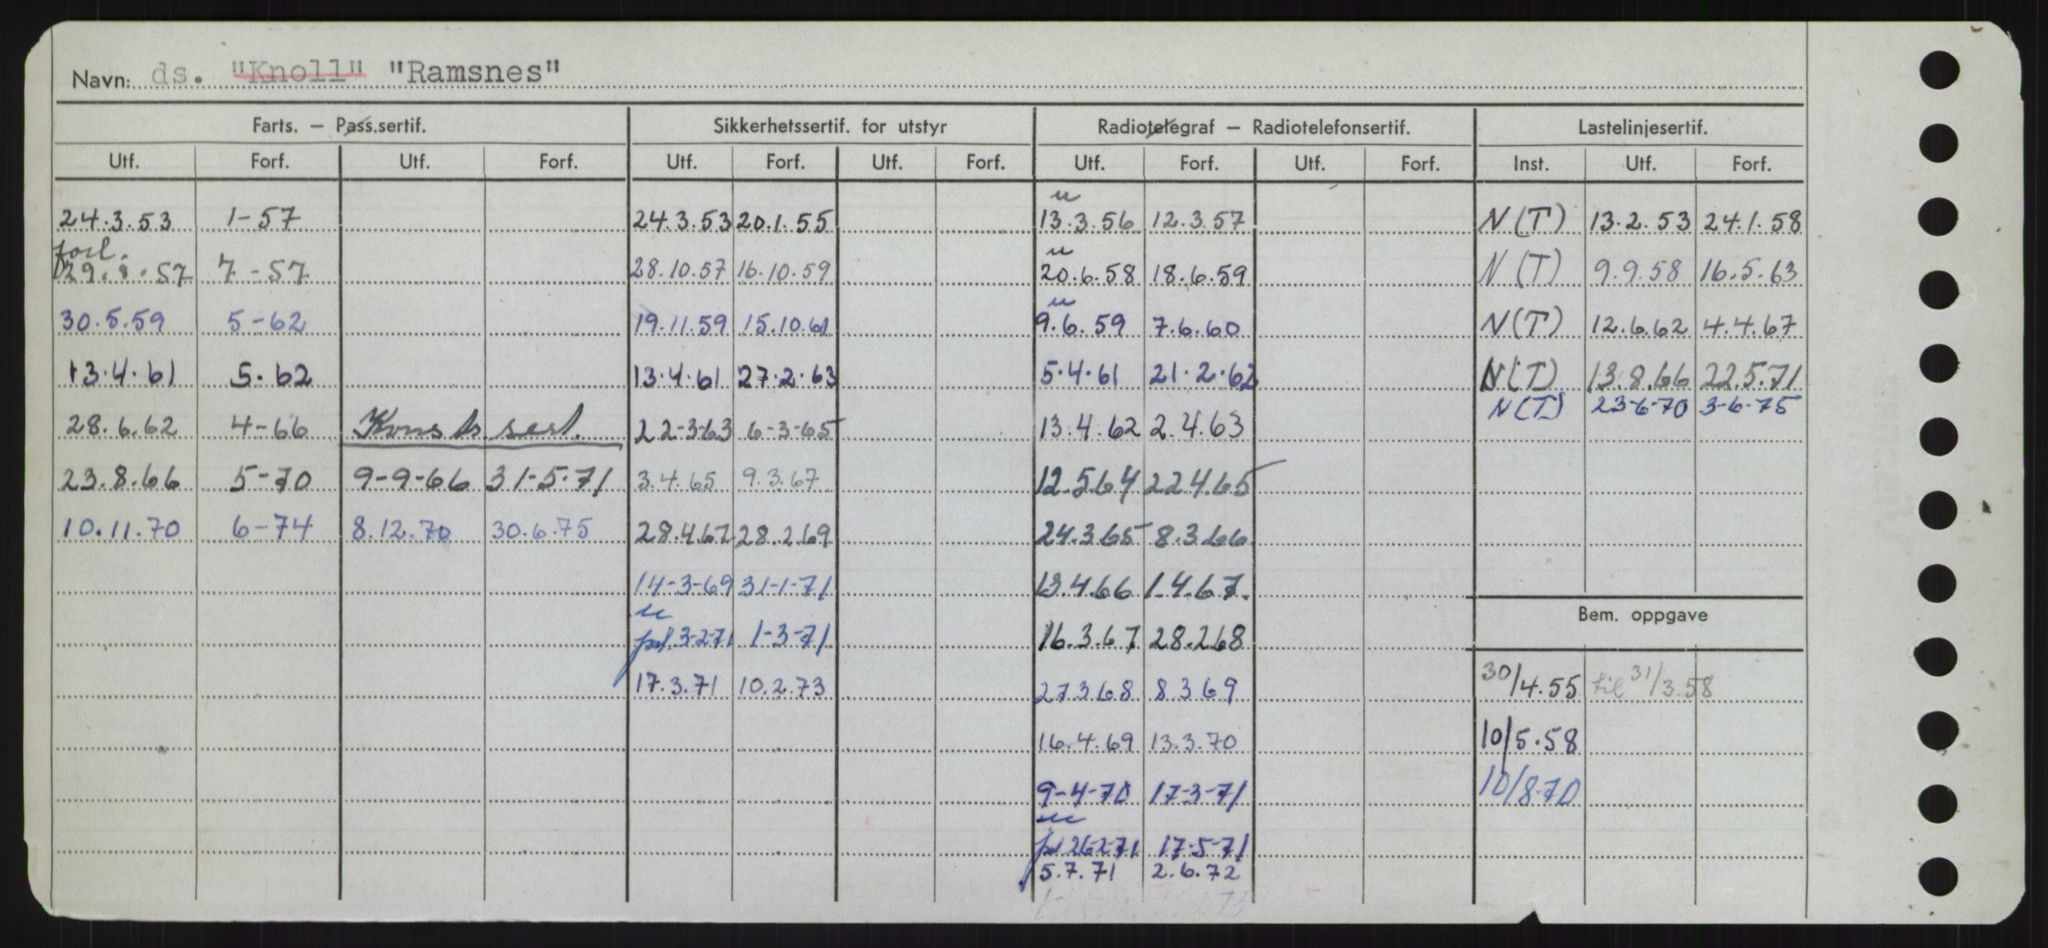 Navn: ds. "Knoll" "Ramsnes"
Farts. – Pass.sertif. Sikkerhetssertif. for utstyr Radiotelegraf – Radiotelefonsertif. Lastelinjesertif.
Utf. Forf. Utf. Forf. Utf. Forf. Utf. Forf. Utf. Forf. Utf. Forf. Inst. Utf. Forf.
u
24.3.53 1-57 24.3.53 20.1.55 13.3.56 12.3.57 N(T) 13.2.53 24.1.58
forl. u
29.1.57 7-57 28.10.57 16.10.59 20.6.58 18.6.59 N(T) 9.9.58 16.5.63
u
30.5.59 5-62 19.11.59 15.10.61 9.6.59 7.6.60 N(T) 12.6.62 4.4.67
13.4.61 5.62 13.4.61 27.2.63 5.4.61 21.2.62 N(T) 13.8.66 22.5.71
N(T) 23-6-70 3-6-75
28.6.62 4-66 Konstr sert. 22-3-63 6-3-65 13.4.62 2.4.63
23.8.66 5-70 9-9-66 31-5-71 3.4.65 9.3.67 12.5.64 22.4.65
10.11.70 6-74 8.12.70 30.6.75 28.4.67 28.2.69 24.3.65 8.3.66
14-3-69 31-1-71 13.4.66 1.4.67.
u
3-2-71 1-3-71 16.3.67 28.2.68
17.3.71 10.2.73 27.3.68 8.3.69
16.4.69 13.3.70
9-4-70 17-3-71
u
26-2-71 17-5-71
5.7.71 2.6.72
Bem. oppgave
30/4.55 til 31/3.58
10/5.58
10/8-70